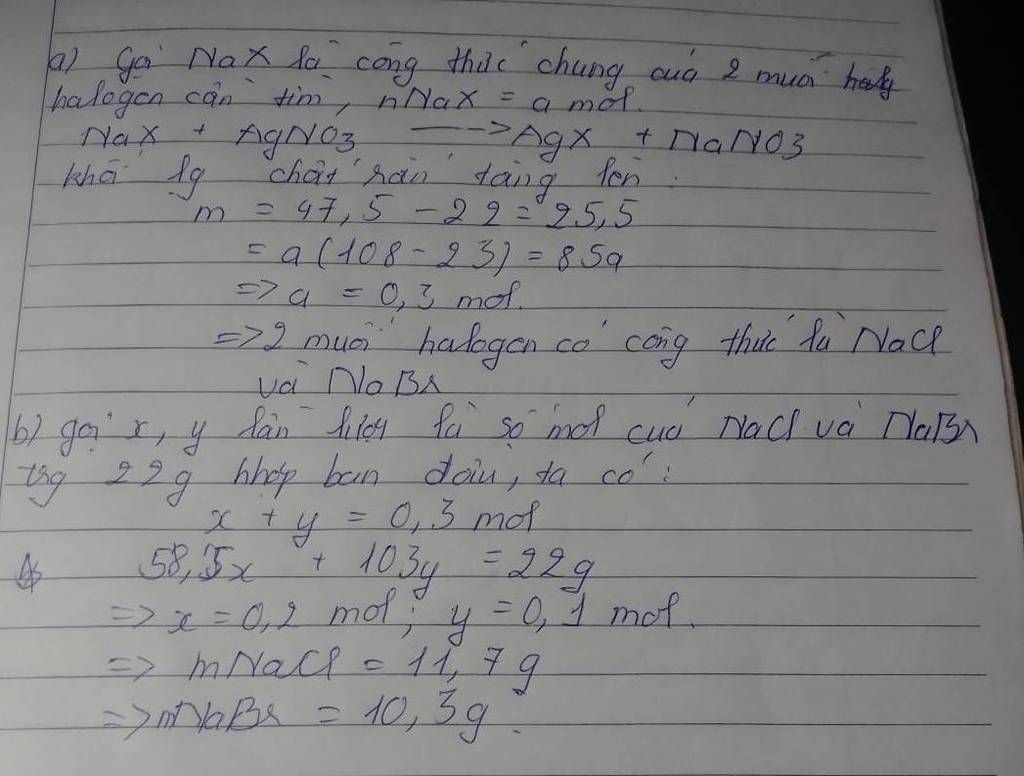 a) Gọi NaX là công thức chung của 2 muối
halogen cần tìm, nNaX = a mol.
NaX + AgNO3 ⟶ AgX + NaNO3
khối lg chất rắn tăng lên :
m = 47,5 - 22 = 25,5
= a(108 - 23) = 85a
=> a = 0,3 mol.
=> 2 muối halogen có công thức là NaCl
và NaBr
b) gọi x, y lần lượt là số mol của NaCl và NaBr
trg 22g hhợp ban đầu, ta có :
x + y = 0,3 mol
58,5x + 103y = 22g
=> x = 0,2 mol; y = 0,1 mol.
=> mNaCl = 11,7g
=> mNaBr = 10,3g.